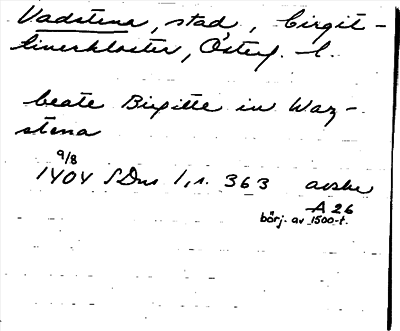 Vadstena, stad, Birgit-
tinerkloster, Österg. l.
beate Birgitte in Waz-
stena
9/8
1404 SDns 1, s. 363 avskr
A 26
börj. av 1500-t.